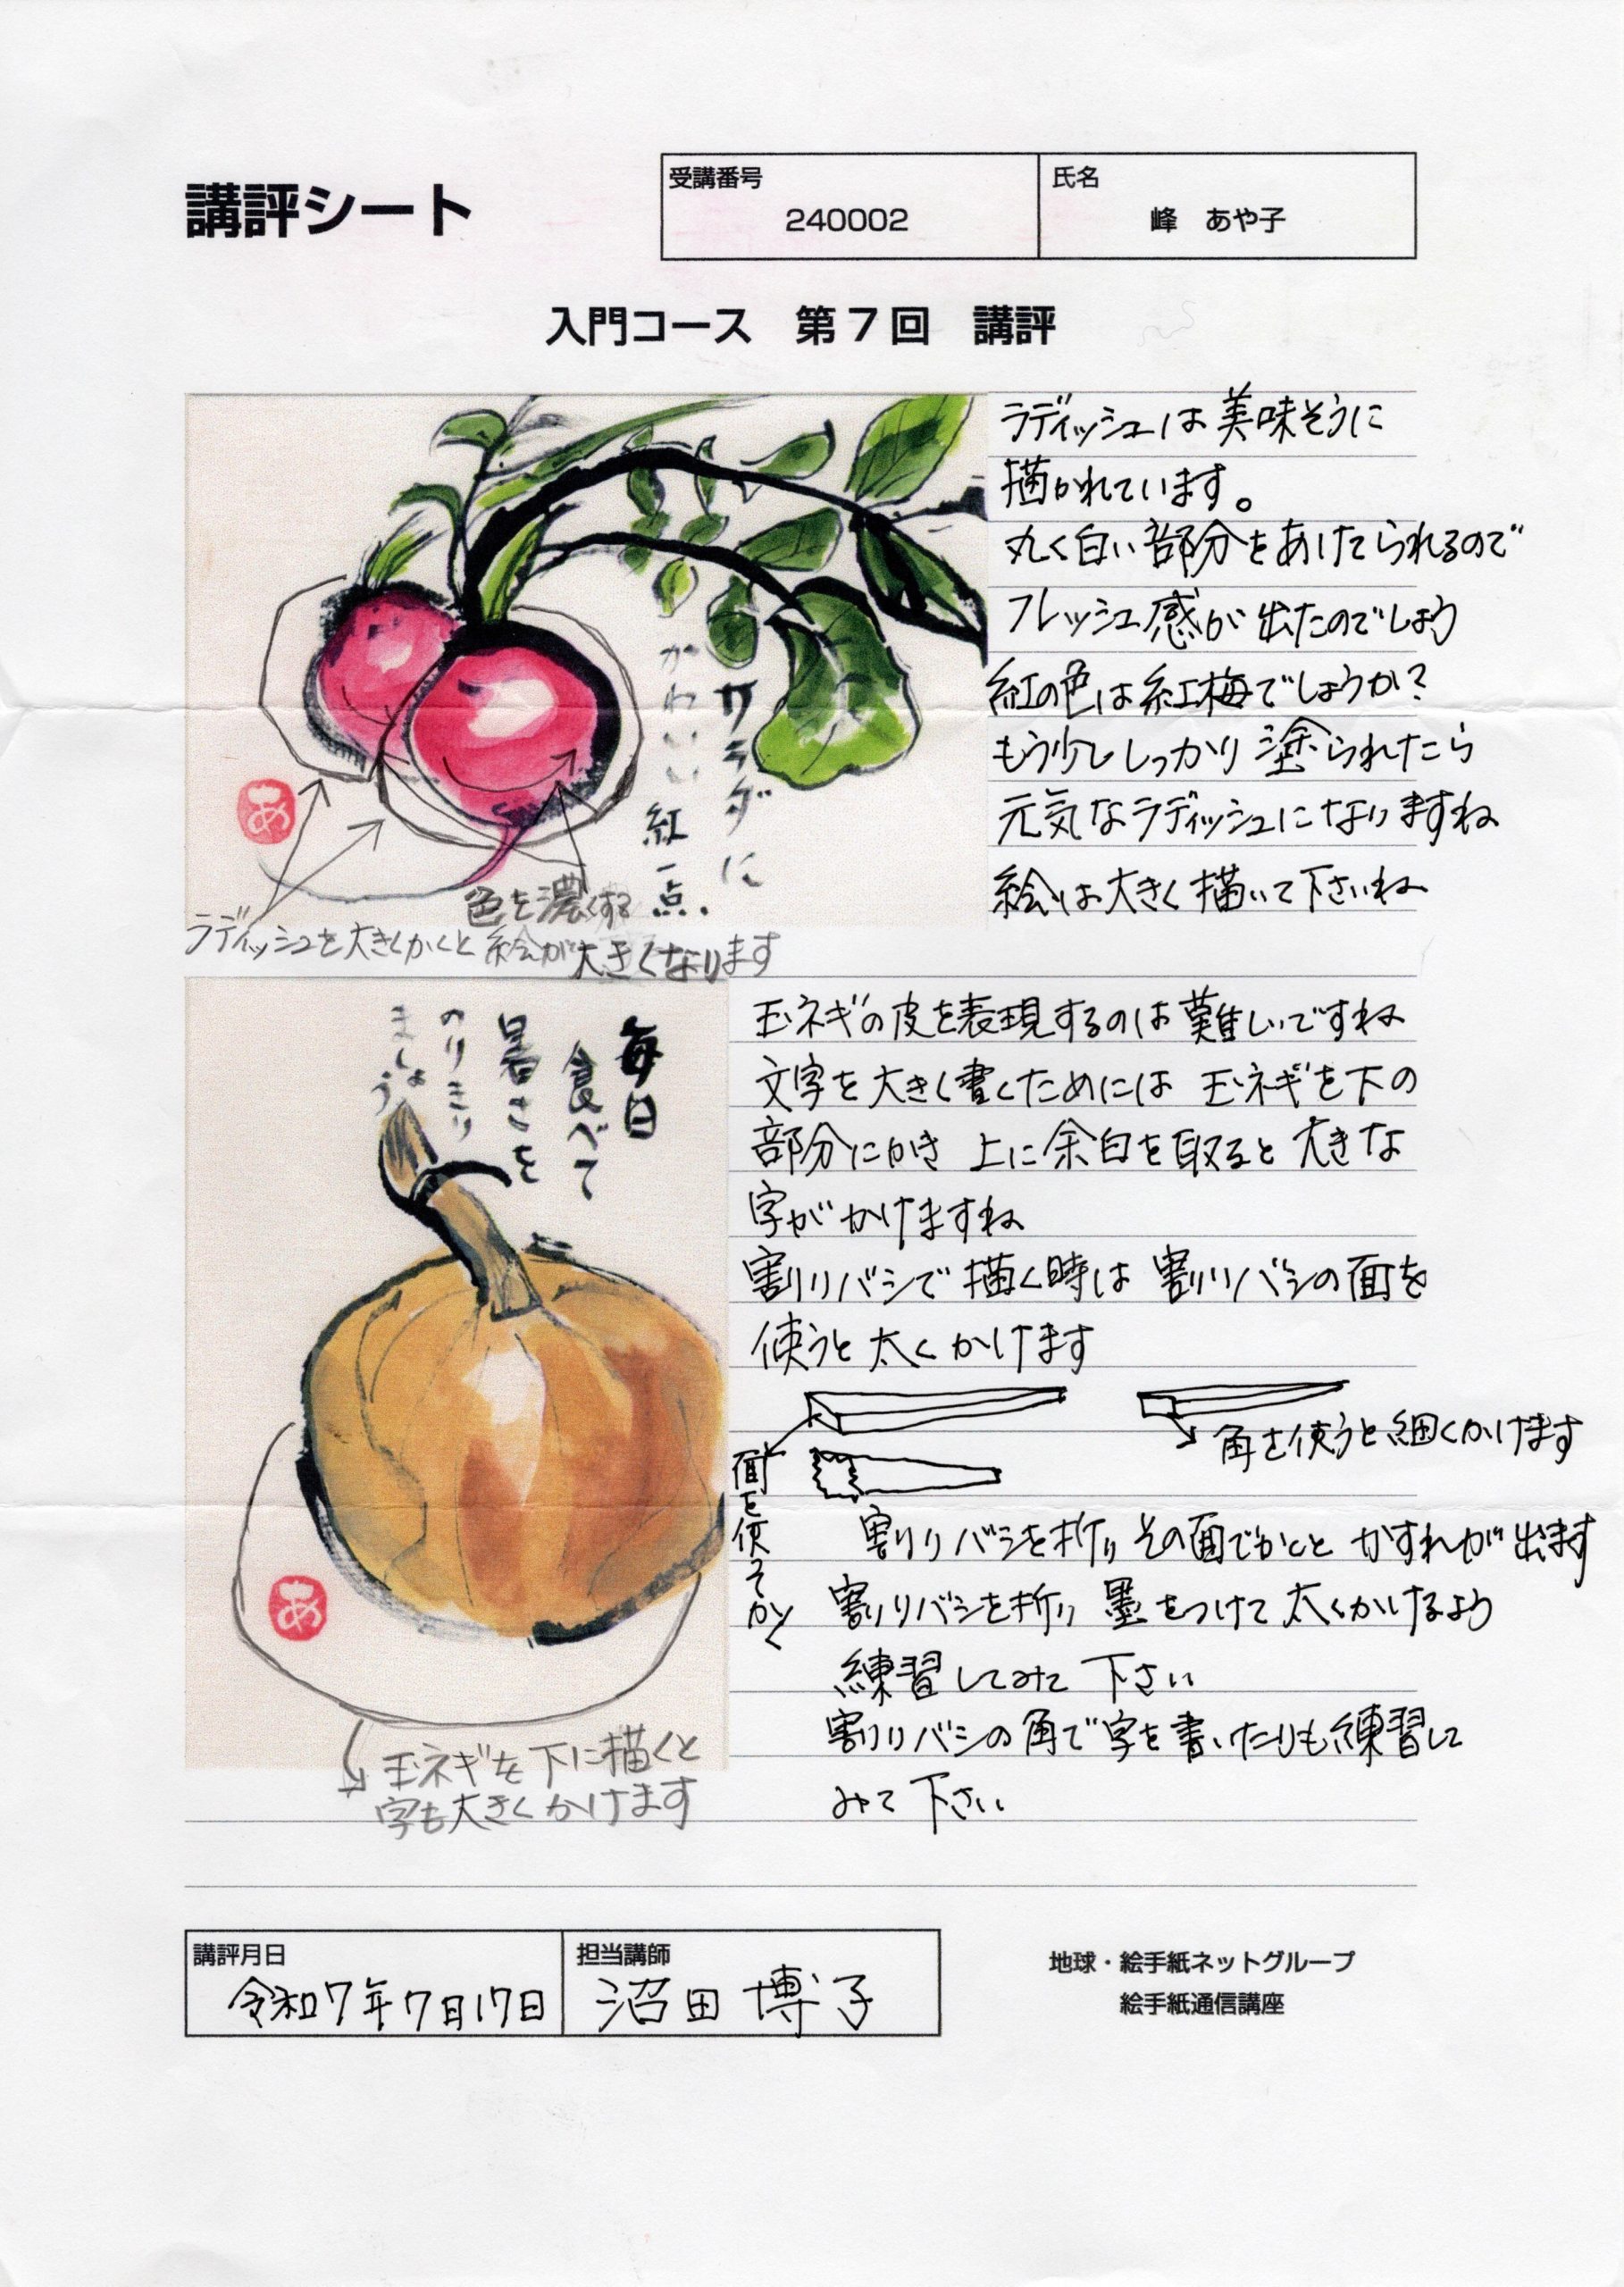 講評シート
受講番号
240002
氏名
峰 あや子
入門コース 第7回 講評
サラダに
かわいい
紅一点.
あ
色を濃くする
ラディッシュを大きくかくと絵が大きくなります
ラディッシュは美味そうに
描かれています。
丸く白い部分をあけてられるので
フレッシュ感が出たのでしょう
紅の色は紅梅でしょうか?
もう少ししっかり塗られたら
元気なラディッシュになりますね
絵は大きく描いて下さいね
毎日
食べて
暑さを
のりきり
ましょう
あ
玉ネギを下に描くと
字も大きくかけます
玉ネギの皮を表現するのは難しいですね
文字を大きく書くためには 玉ネギを下の
部分にかき 上に余白を取ると大きな
字がかけますね
割りバシで描く時は 割りバシの面を
使うと太くかけます
面を使ってかく
角を使うと細くかけます
割りバシを折りその面でかくと かすれが出ます
割りバシを折り 墨をつけて太くかけるよう
練習してみて下さい
割りバシの角で字を書いたりも練習して
みて下さい
講評月日
令和7年7月17日
担当講師
沼田 博子
地球・絵手紙ネットグループ
絵手紙通信講座